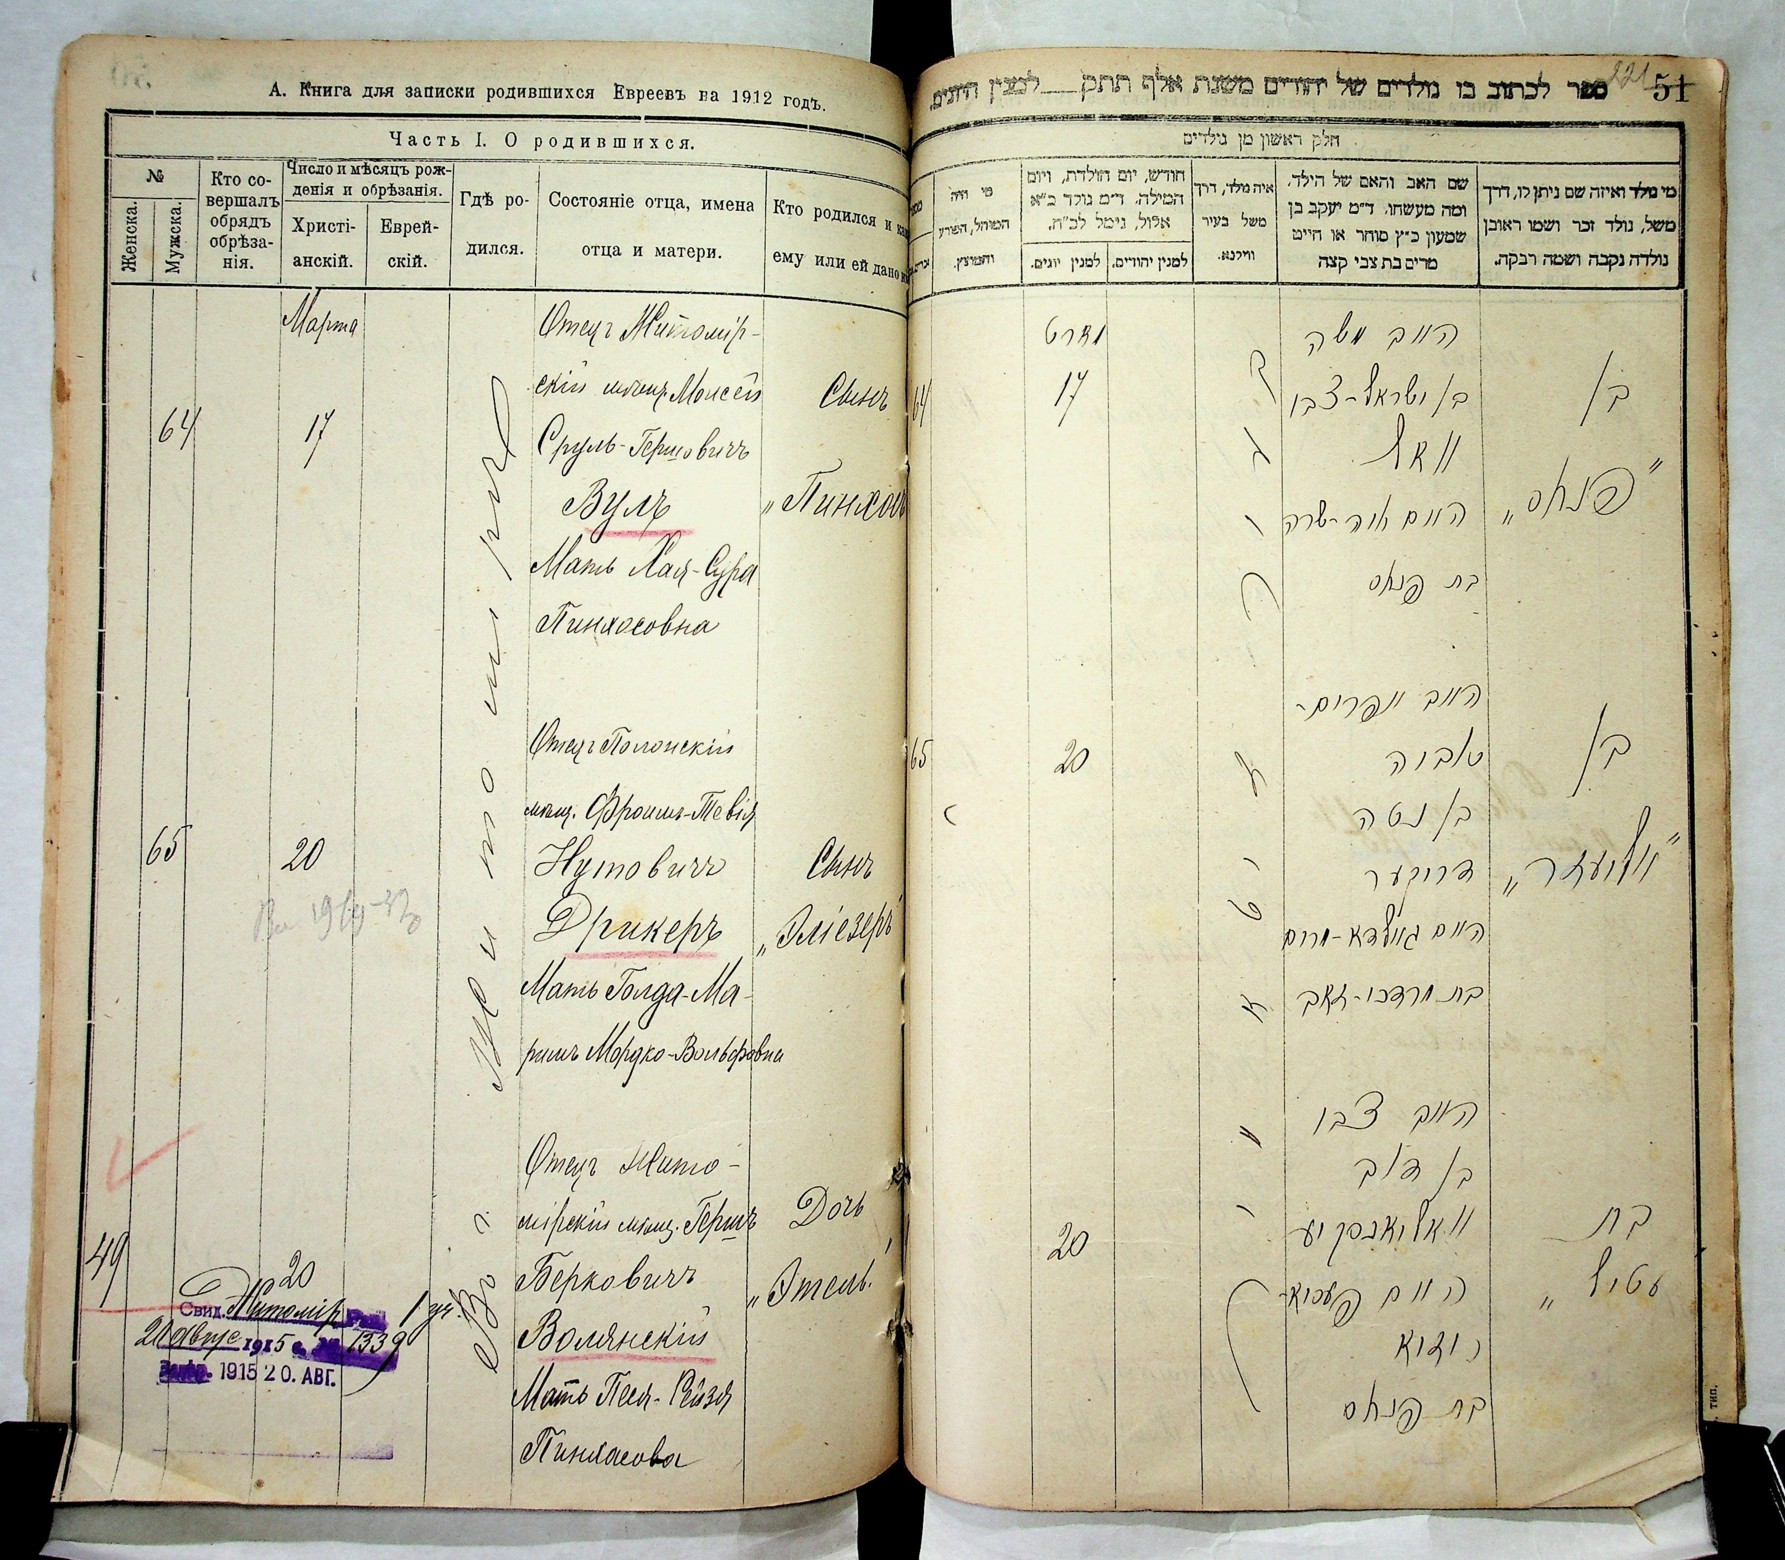 А. Книга для записки родившихся Евреевъ на 1912 годъ.
Часть I. О родившихся.
№
Женска.
Мужска.
Кто со-
вершалъ
обрядъ
обрѣза-
нія.
Число и мѣсяцъ рож-
денія и обрѣзанія.
Христі-
анскій.
Еврей-
скій.
Гдѣ ро-
дился.
Состояніе отца, имена
отца и матери.
Кто родился и
ему или ей дано
Въ г. Житомирѣ
Марта
64
17
Отецъ Житомір-
скій мѣщ. Моисей
Сруль-Гершовичъ
Вулъ
Мать Хая-Сура
Пинхосовна
Сынъ
„Пинхосъ
65
20
Отецъ Полонскій
мѣщ. Фроимъ-Тевія
Нутовичъ
Дрикеръ
Мать Голда-Ма-
римъ Мордко-Вольфовна
Сынъ
„Эліезеръ"
49
20
Отецъ Жито-
мірскій мѣщ. Гершъ
Берковичъ
Волянскій
Мать Песя-Рейзя
Пинхасова
Дочь
„Этель"
Свид. Житомір
1915 г. № 1339
1915 20. АВГ.
ספר לכתוב בו נולדים של יהודים משנת אלף תתק למנין היונים.
221
51
חלק ראשון מן נולדים
מי נולד ואיזה שם ניתן לו, דרך
משל, נולד זכר ושמו ראובן
נולדה נקבה ושמה רבקה.
שם האב והאם של הילד,
ומה מעשהו, ד״מ יעקב בן
שמעון כ״ץ סוחר או חייט
מרים בת צבי קצה
איה נולד, דרך
משל בעיר
ווילנא.
חודש, יום הולדת, ויום
המילה, ד״מ נולד כ״א
אלול, נימל לכ״ח.
למנין יהודים.
למנין יונים.
מי היה
המוהל, הפורע
והמוצץ.
מארט
64
17
האב משה
בן ישראל-צבי
וואל
האם חיה-שרה
בת פנחס
בן
„פנחס"
65
20
האב אפרים-
טוביה
בן נטה
דריקער
האם גאלדא-מרים
בת מרדכי-זאב
בן
„אליעזר"
20
האב צבי
בן דוב
וואליאנסקיע
האם פעסיא-
רייזיא
בת פנחס
בת
„עטיל
тип.